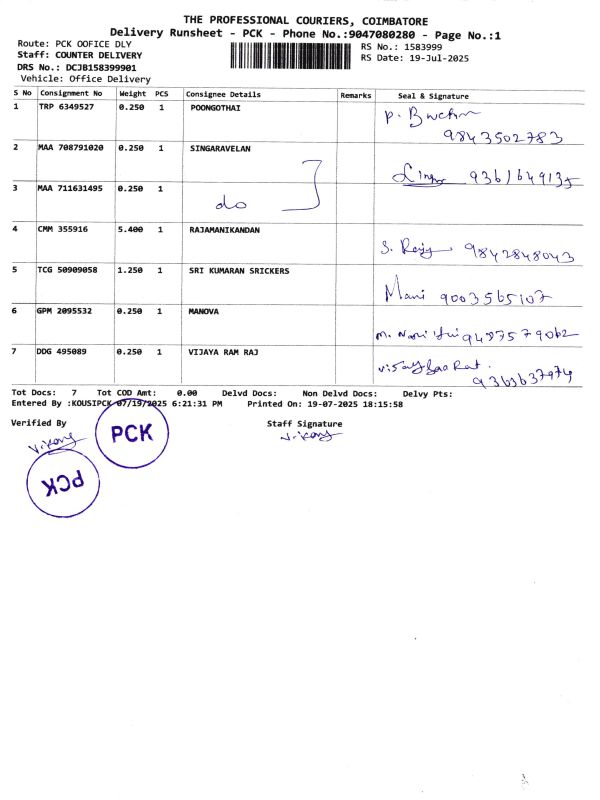 THE PROFESSIONAL COURIERS, COIMBATORE
Delivery Runsheet - PCK - Phone No.:9047080280 - Page No.:1
Route: PCK OOFICE DLY
RS No.: 1583999
Staff: COUNTER DELIVERY
RS Date: 19-Jul-2025
DRS No.: DCJB158399901
Vehicle: Office Delivery
S No Consignment No Weight PCS Consignee Details Remarks Seal & Signature
1 TRP 6349527 0.250 1 POONGOTHAI
9843502783
2 MAA 708791020 0.250 1 SINGARAVELAN
9361649135
3 MAA 711631495 0.250 1
do
4 CMM 355916 5.400 1 RAJAMANIKANDAN
9842848043
5 TCG 50909058 1.250 1 SRI KUMARAN SRICKERS
Mani 9003565107
6 GPM 2095532 0.250 1 MANOVA
9487579062
7 DDG 495089 0.250 1 VIJAYA RAM RAJ
9363637974
Tot Docs: 7 Tot COD Amt: 0.00 Delvd Docs: Non Delvd Docs: Delvy Pts:
Entered By :KOUSIPCK 07/19/2025 6:21:31 PM Printed On: 19-07-2025 18:15:58
Verified By Staff Signature
PCK
PCK